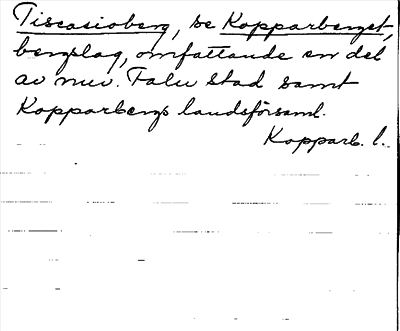 Tiscasioberg, se Kopparberget,
bergslag, omfattande en del
av nuv. Falu stad samt
Kopparbergs landsförsaml.
Kopparb. l.